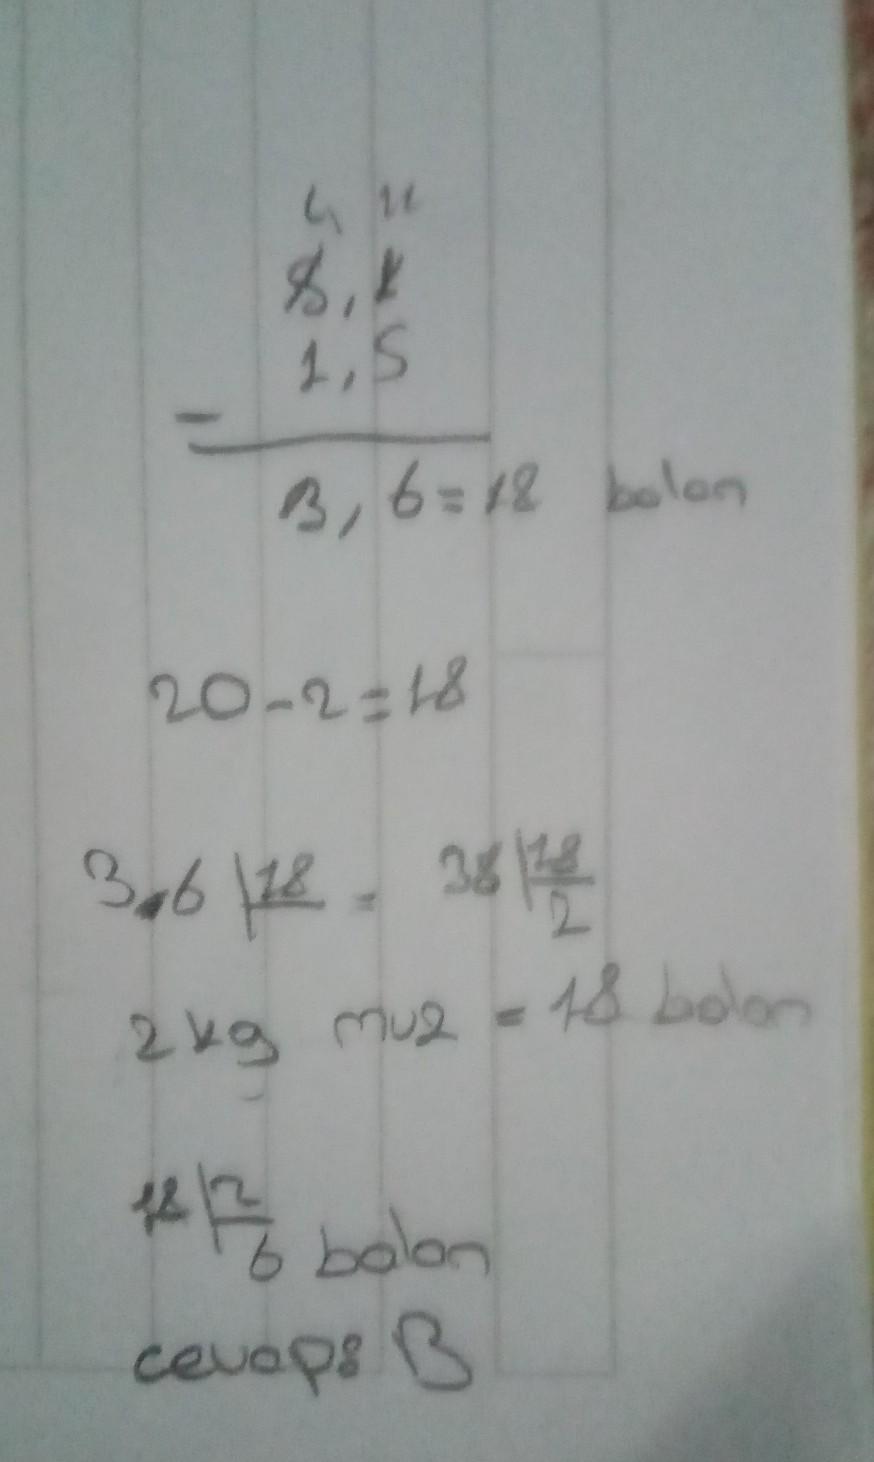 4 11
5,1
1,5
-
3,6=18 balon
20-2=18
3,6 18 = 36 18
2
2 kg muz = 18 balon
18 2
6 balon
cevap: B